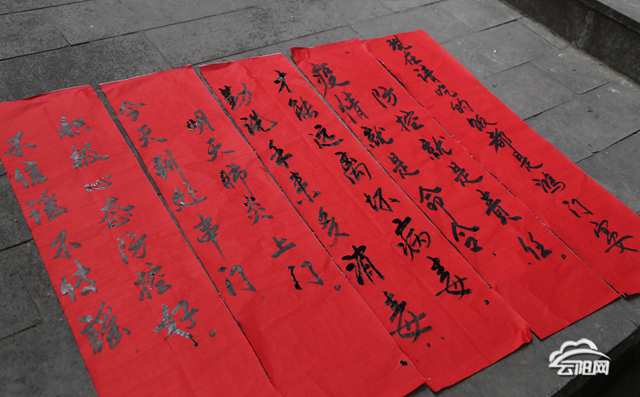 不信谣不传谣
积极心态防控好。
今天到处串门
明天肺炎上门。
勤洗手来多消毒
才能远离坏病毒。
疫情就是命令。
防控就是责任。
现在请吃的饭都是鸿门宴
云阳网